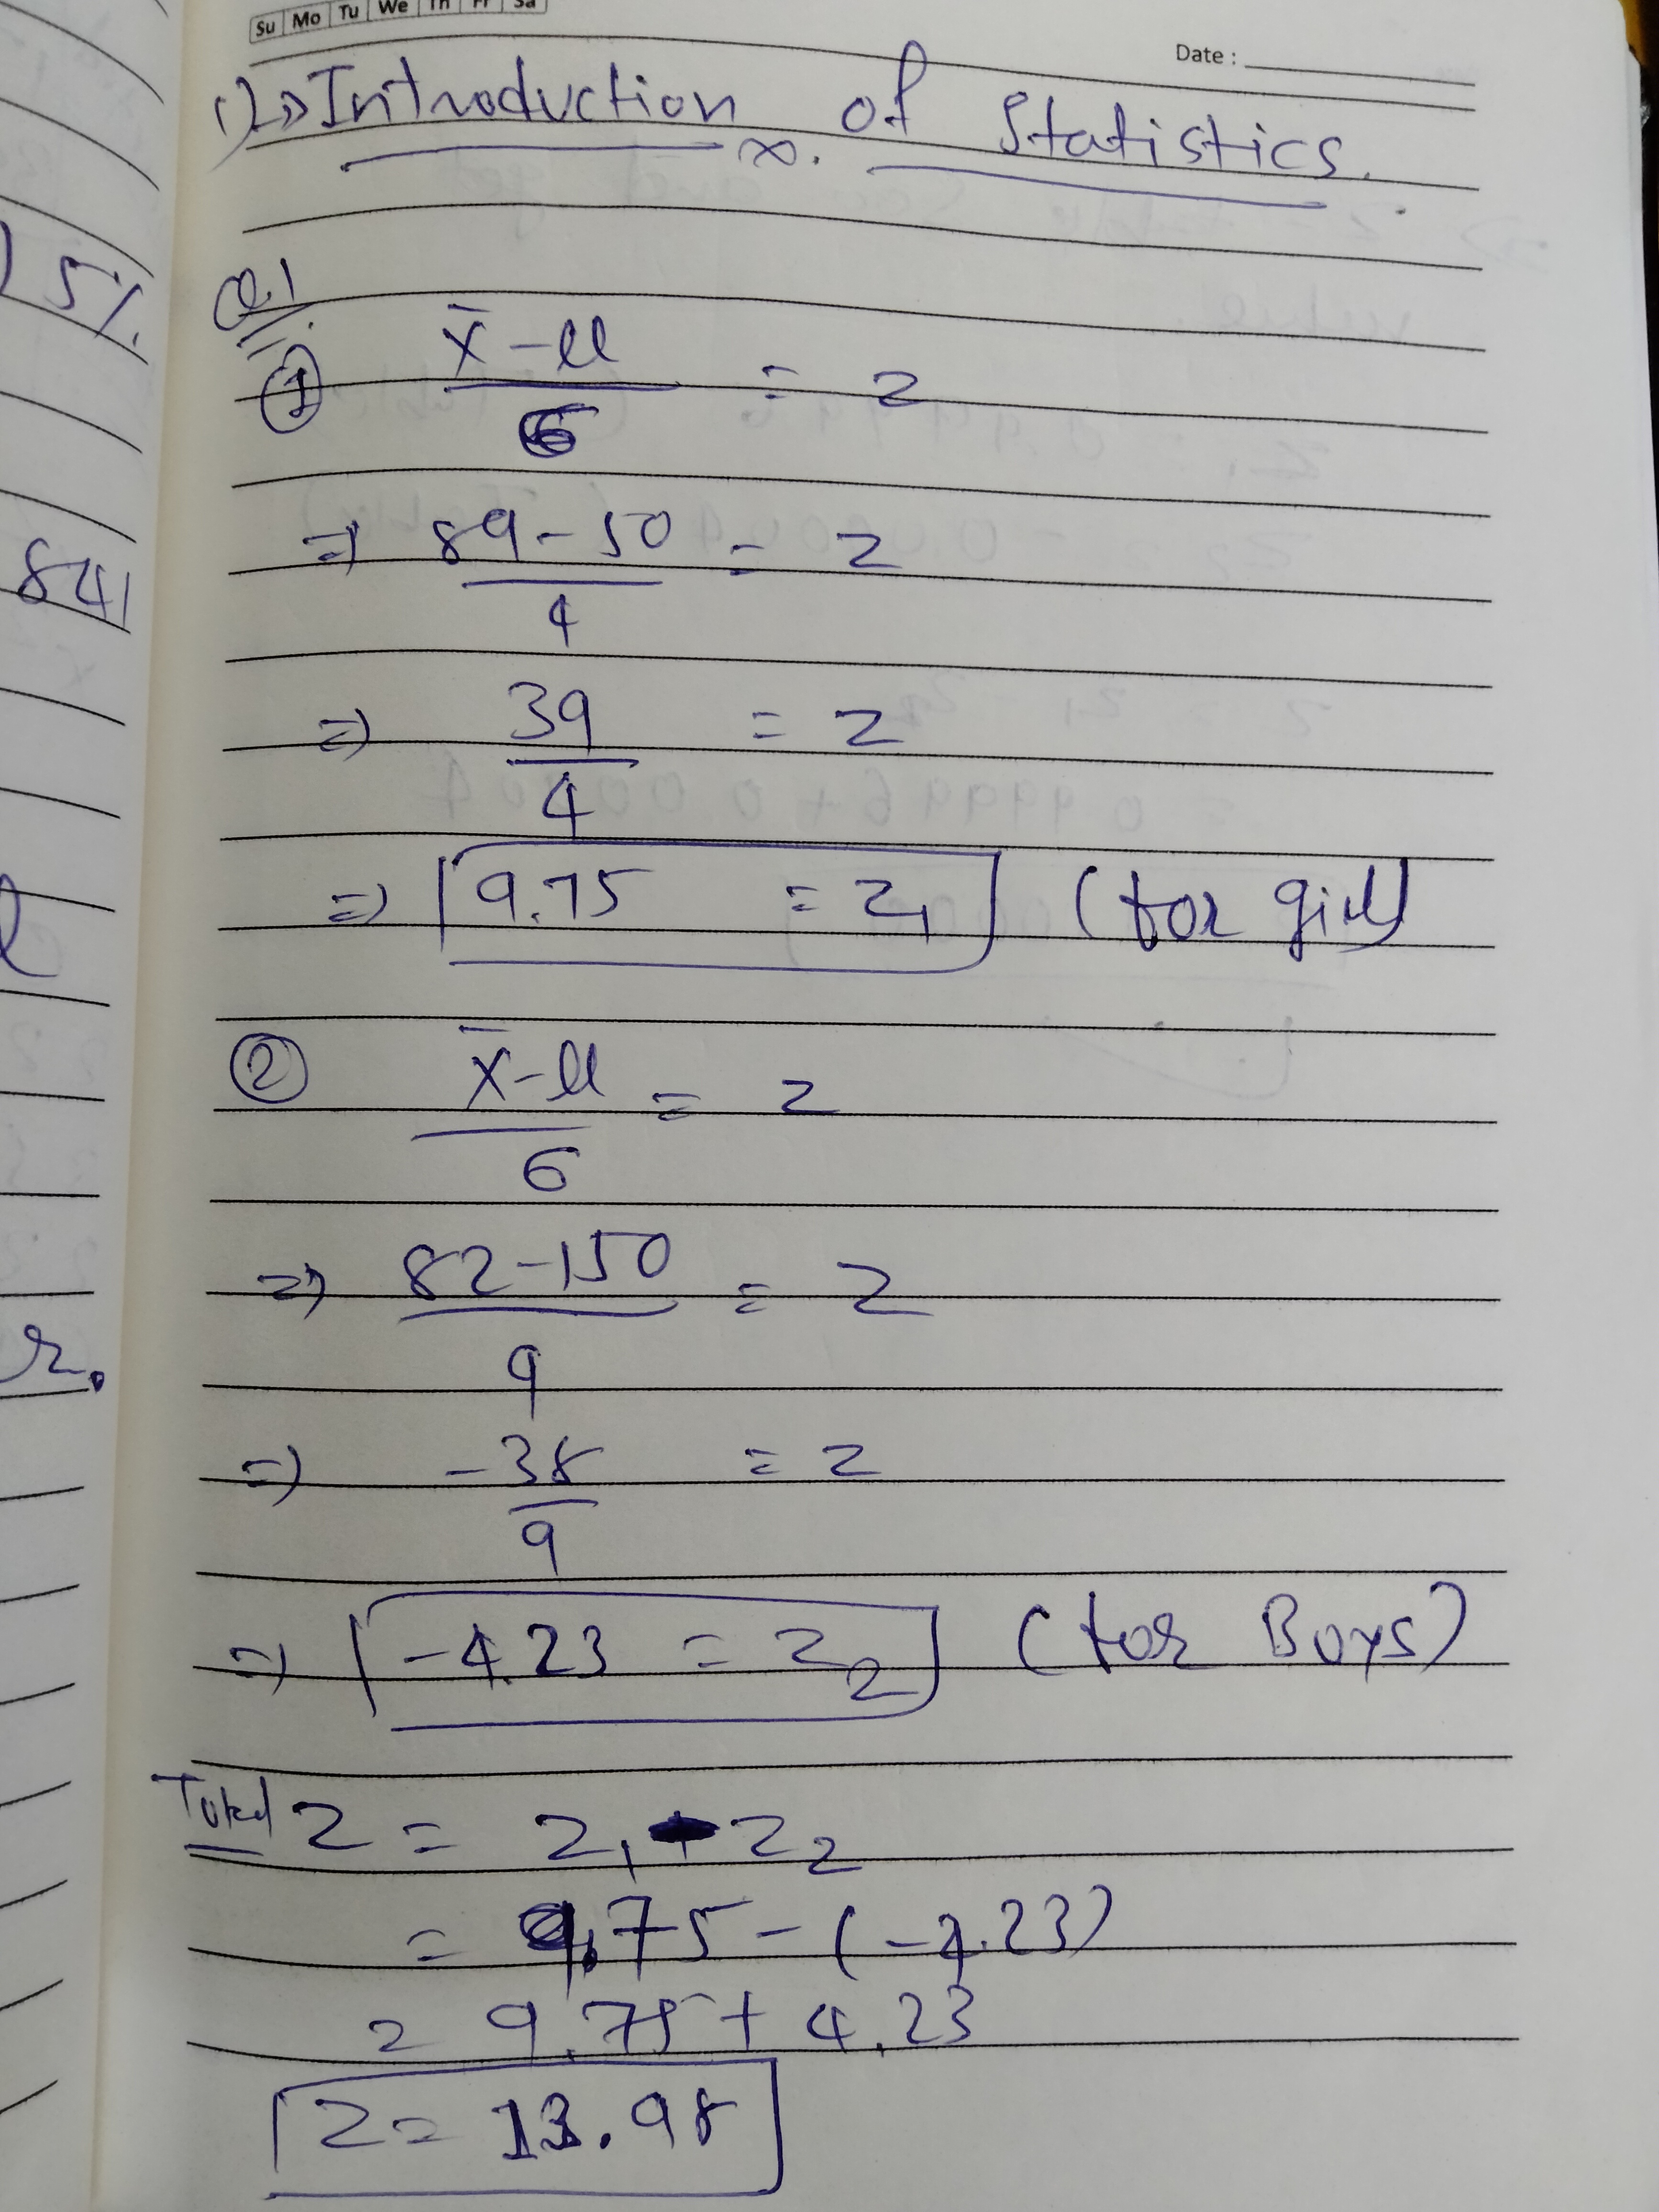 Su Mo Tu We Th Fr Sa
Date :
1) Introduction of Statistics.
Q.1
① x̄ - μ / 6 = z
⇒ 89 - 50 / 4 = z
⇒ 39 / 4 = z
⇒ 9.75 = z₁ (for girl)
② x̄ - μ / 6 = z
⇒ 82 - 150 / 9 = z
⇒ -38 / 9 = z
⇒ -4.23 = z₂ (for Boys)
Total z = z₁ - z₂
= 9.75 - (-4.23)
= 9.75 + 4.23
z = 13.98
5%
841
r.